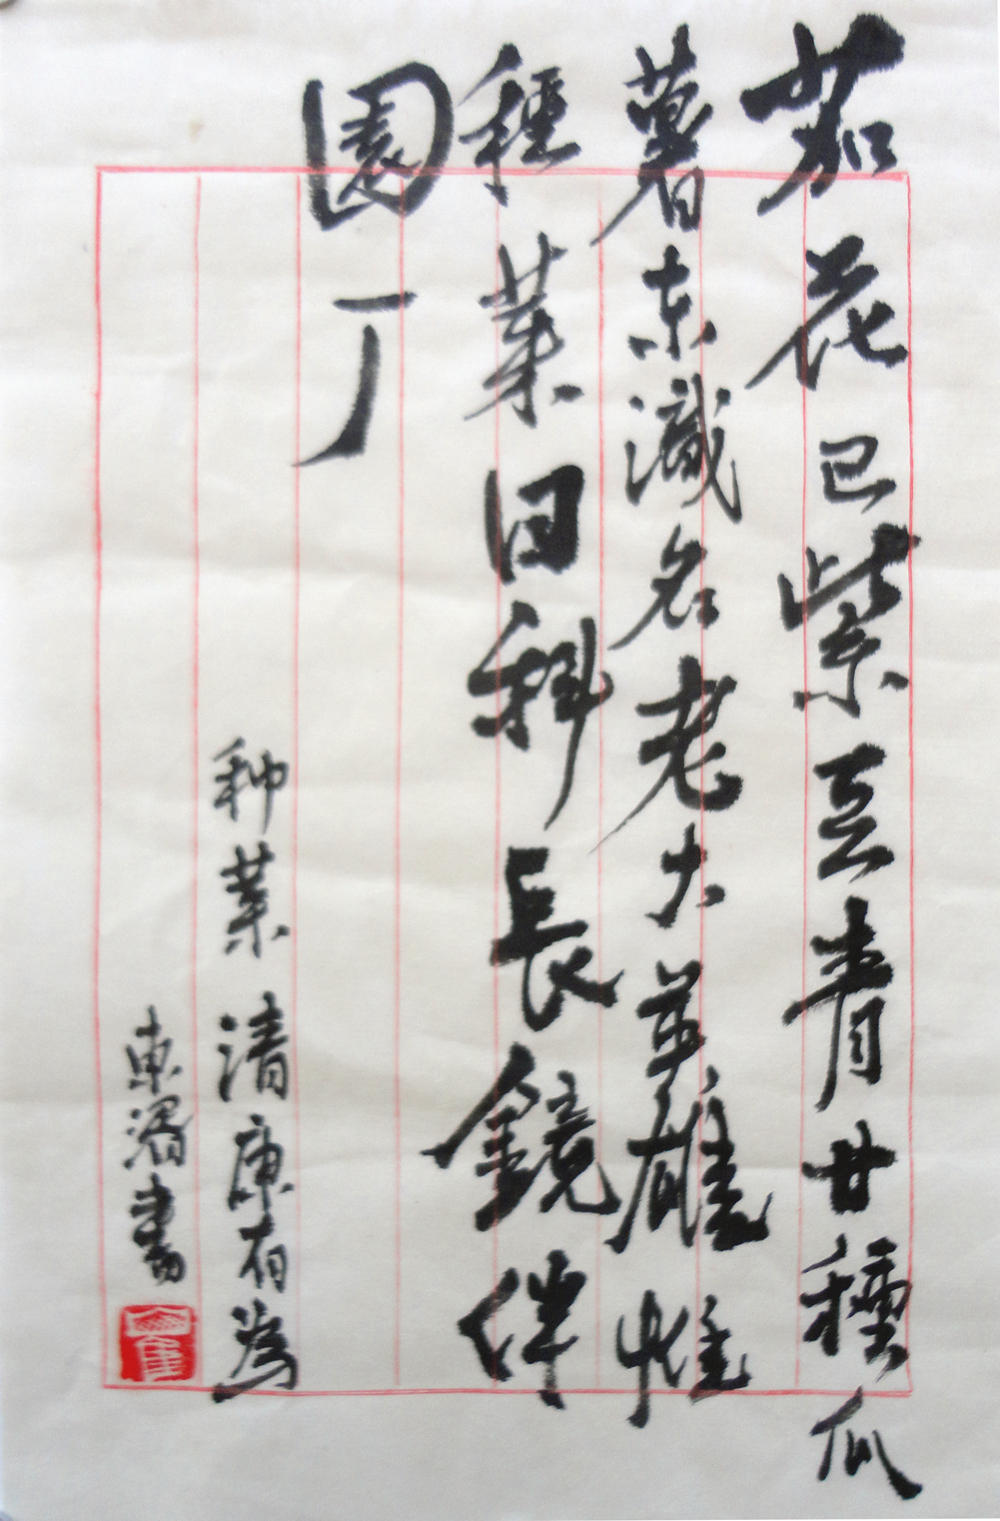 茄花已紫豆青甘種瓜
薯東名老大英雄惟
種菜日斜長鏡伴
園丁
种菜 清康有為
東書